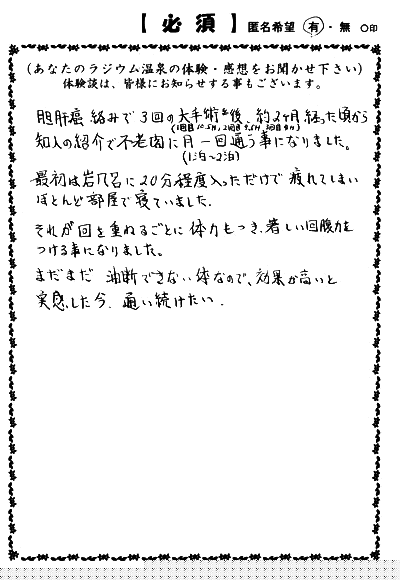 【必須】 匿名希望 有・無 ○印
(あなたのラジウム温泉の体験・感想をお聞かせ下さい)
体験談は、皆様にお知らせする事もございます。
胆肝癌 絡みで 3回の大手術後、約2ヶ月経った頃から
知人の紹介で不老閣に月一回通う事になりました。
(1泊~2泊)
最初は岩風呂に20分程度入っただけで 疲れてしまい
ほとんど部屋で寝ていました。
それが回を重ねるごとに体力もつき、著しい回復力を
つける事になりました。
まだまだ 油断できない体なので、効果が高いと
実感した今、通い続けたい。